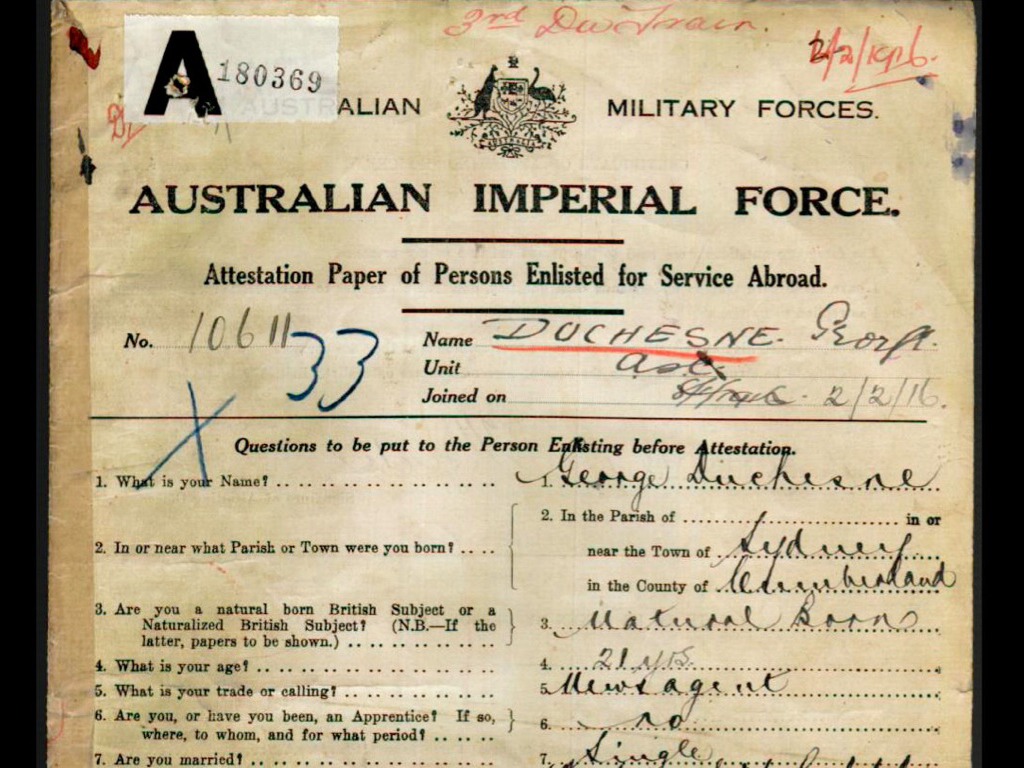 3rd Div Train.
2/2/1916.
A 180369
AUSTRALIAN MILITARY FORCES.
AUSTRALIAN IMPERIAL FORCE.
Attestation Paper of Persons Enlisted for Service Abroad.
No. 10611 33
Name DUCHESNE. George.
Unit
Joined on 2/2/16.
X
Questions to be put to the Person Enlisting before Attestation.
1. What is your Name? 1. George Duchesne
2. In or near what Parish or Town were you born? 2. In the Parish of in or
near the Town of Sydney
in the County of Cumberland
3. Are you a natural born British Subject or a
Naturalized British Subject? (N.B.—If the
latter, papers to be shown.) 3. Natural Born
4. What is your age? 4. 21 yrs.
5. What is your trade or calling? 5. Newsagent
6. Are you, or have you been, an Apprentice? If so,
where, to whom, and for what period? 6. no
7. Are you married? 7. Single